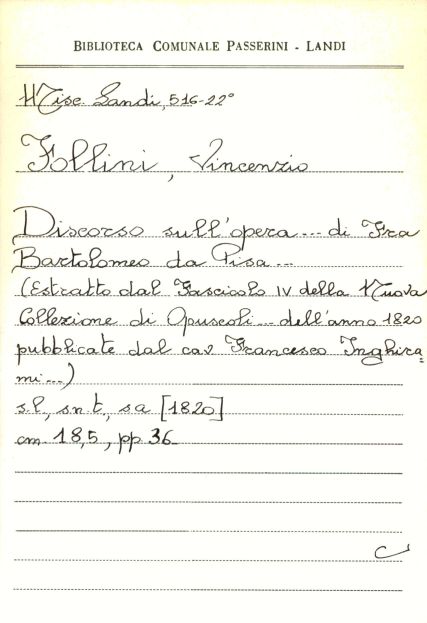 BIBLIOTECA COMUNALE PASSERINI - LANDI
Misc. Landi, 516-22°
Follini, Vincenzio
Discorso sull'opera... di Fra
Bartolomeo da Pisa...
(Estratto dal Fascicolo IV della Nuova
Collezione di Opuscoli... dell'anno 1820
pubblicate dal cav Francesco Inghira=
mi...)
s.l., s.n.t., s.a [1820]
cm. 18,5, pp. 36
C